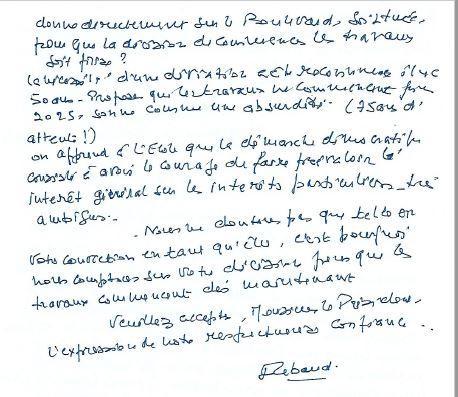 donne directement sur le Boulevard Solitude,
pour que la décision de commencer les travaux
soit prise ?
La nécessité d'une déviation a été reconnue il y a
50 ans - Proposer que les travaux ne commencent
2025, sonne comme une absurdité. (75 ans d'
attente !)
on apprend à l'Ecole que la démarche démocratique
consiste à avoir le courage de faire prévaloir l'
intérêt général sur les intérêts particuliers
ambigus.
Nous ne doutons pas que telle en
votre conviction en tant qu'élu, c'est pourquoi
nous comptons sur votre décision pour que les
travaux commencent dès maintenant
Veuillez accepter, Monsieur le Président,
l'expression de notre respectueuse confiance ..
Rebaud.